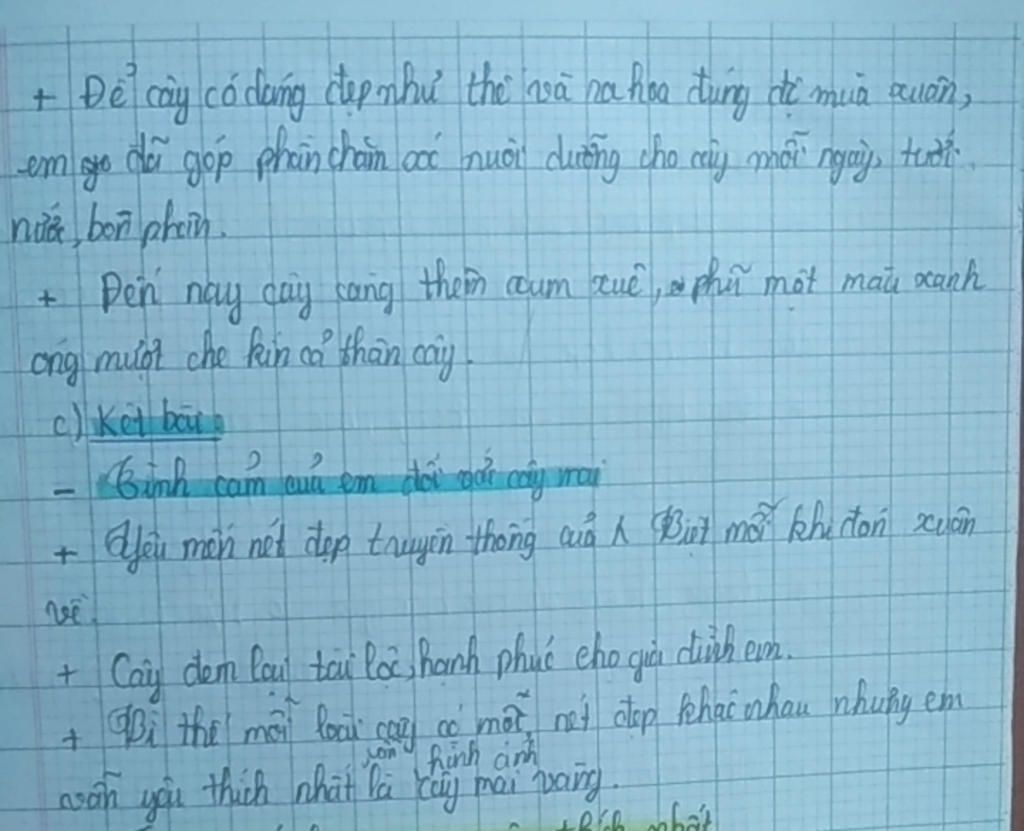 + Để cây có dáng đẹp như thế và ra hoa đúng độ mùa xuân,
em đã góp phần chăm sóc nuôi dưỡng cho cây mỗi ngày, tưới
nước, bón phân.
+ Đến nay cây càng thêm xum xuê, phủ một màu xanh
óng mượt che kín cả thân cây.
c) Kết bài:
- Tình cảm của em đối với cây mai
+ Yêu mến nét đẹp truyền thống của Việt mỗi khi đón xuân
về.
+ Cây đem lại tài lộc, hạnh phúc cho gia đình em.
+ Bởi thế mỗi loài cây có một nét đẹp khác nhau nhưng em
vẫn yêu thích nhất vẫn là hình ảnh cây mai vàng.
thích nhất